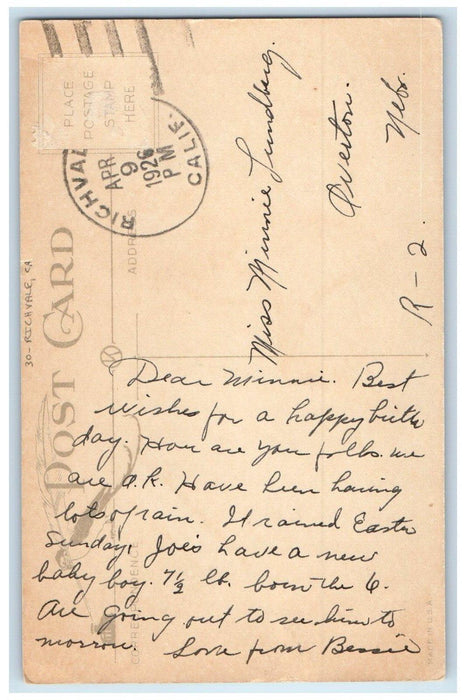 PLACE
POSTAGE
STAMP
HERE
RICHVALE
CALIF.
APR
9
1926
PM
30-RICHVALE, CA
POST CARD
ADDRESS
CORRESPONDENCE
MADE IN U.S.A.
Miss Minnie Lundberg.
Overton.
Nebr.
R-2.
Dear Minnie. Best
wishes for a happy birth
day. How are you folks. we
are o.k. Have been having
lots of rain. It rained Easter
Sunday. Joe's have a new
baby boy. 7½ lb. born the 6.
Are going out to see him to
morrow. Love from Bessie